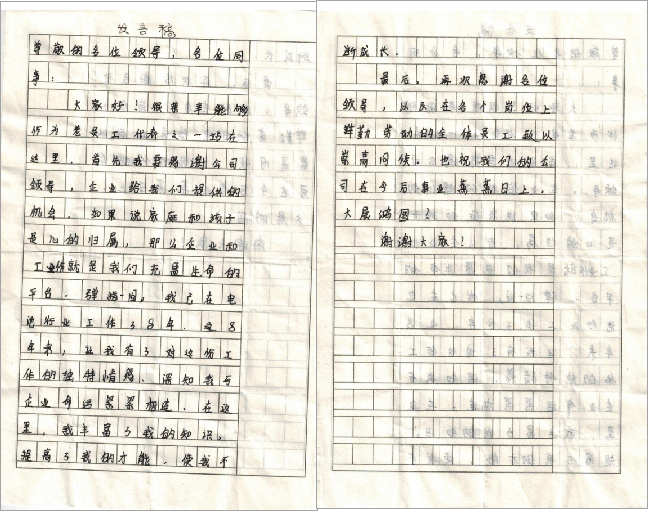 发言稿
尊敬的各位领导，各位同
事：
大家好！很荣幸能够
作为老员工代表之一站在
这里，首先我要感谢公司
领导，企业给我们提供的
机会，如果说家庭和孩子
是心的归属，那么企业和
工作就是我们充盈生命的
平台．弹指一间，我已在电
池行业工作了8年．这8
年来，让我有了对这份工
作的独特情愫、深知我与
企业命运紧紧相连．在这
里，我丰富了我的知识，
提高了我的才能．使我不
断成长．
最后．再次感谢各位
领导，以及在各个岗位上
辛勤劳动的全体员工致以
崇高问候．也祝我们的公
司在今后事业蒸蒸日上．
大展鸿图！
谢谢大家！